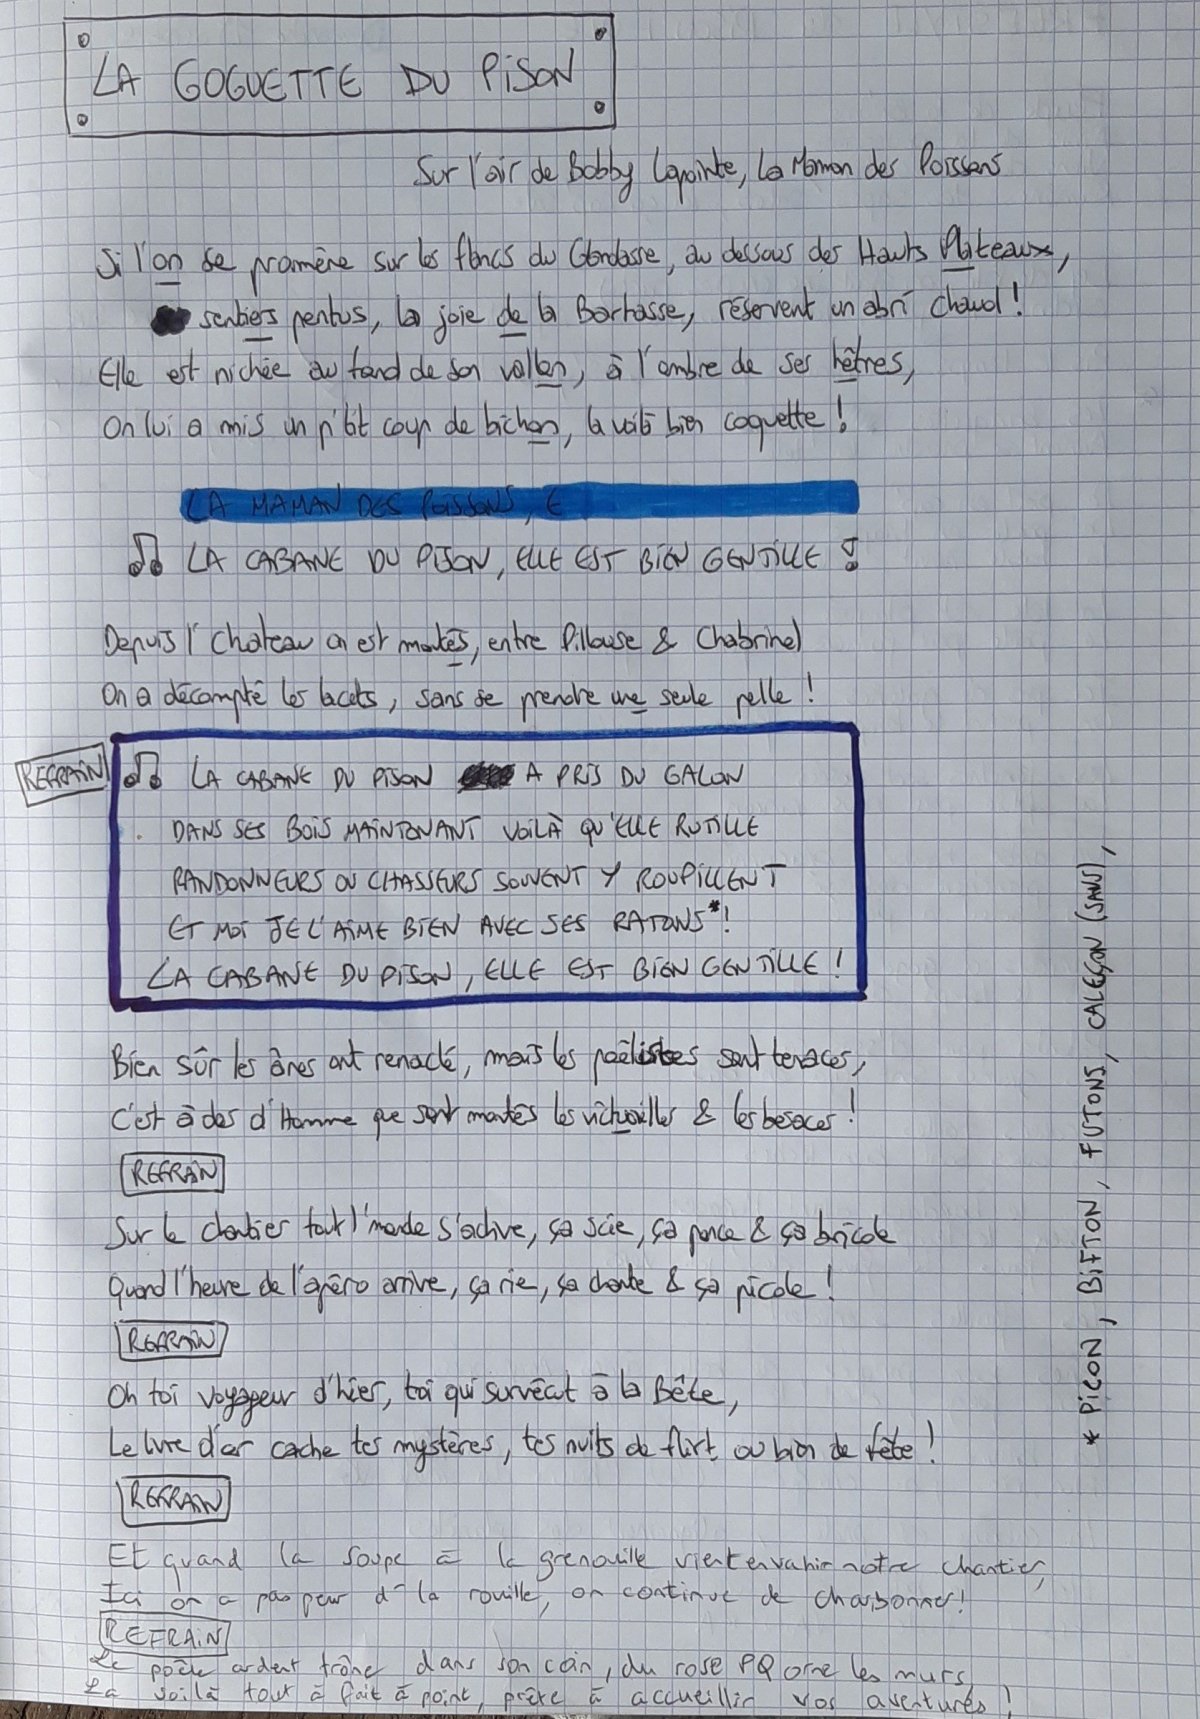 LA GOGUETTE DU PISON
Sur l'air de Bobby Lapointe, La Maman des Poissons
Si l'on se promène sur les flancs du Glandasse, au dessous des Hauts Plateaux,
sentiers pentus, la joie de la Barhasse, réservent un abri chaud !
Elle est nichée au fond de son vallon, à l'ombre de ses hêtres,
On lui a mis un p'tit coup de bichon, la voilà bien coquette !
LA MAMAN DES POISSONS, E
♫ LA CABANE DU PISON, ELLE EST BIEN GENTILLE !
Depuis l'Chateau on est montés, entre Pillouse & Chabrinel
On a décompté les lacets, sans se prendre une seule pelle !
REFRAIN
♫ LA CABANE DU PISON A PRIS DU GALON
DANS SES BOIS MAINTONANT VOILÀ QU'ELLE RUTILLE
RANDONNEURS OU CHASSEURS SOUVENT Y ROUPILLENT
ET MOI JE L'AIME BIEN AVEC SES RATONS*!
LA CABANE DU PISON, ELLE EST BIEN GENTILLE !
Bien sûr les ânes ont renaclé, mais les poêlistes sont tenaces,
C'est à dos d'Homme que sont montés les victuailles & les besaces !
REFRAIN
Sur le chantier tout l'monde s'active, ça scie, ça ponce & ça bricole
Quand l'heure de l'apéro arrive, ça rie, ça chante & ça picole !
REFRAIN
Oh toi voyageur d'hier, toi qui survécut à la Bête,
Le livre d'or cache tes mystères, tes nuits de flirt ou bien de fête !
REFRAIN
Et quand la soupe à la grenouille vient envahir notre chantier,
Ici on a pas peur d'la rouille, on continue de charbonner!
REFRAIN
Le poêle ardent trône dans son coin, du rose PQ orne les murs,
La voilà tout à fait à point, prête à accueillir vos aventures !
* PICON, BIFTON, FUTONS, CALEÇON (SANS),